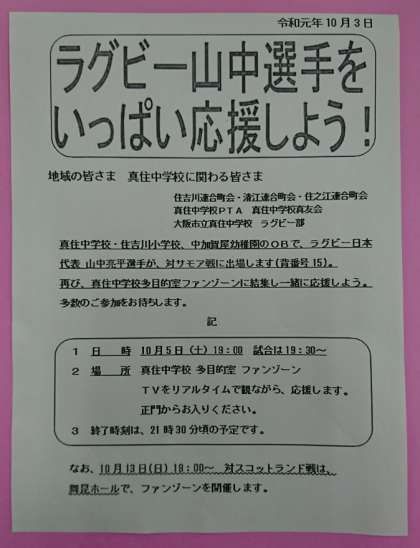 令和元年10月3日
ラグビー山中選手を
いっぱい応援しよう！
地域の皆さま　真住中学校に関わる皆さま
住吉川連合町会・清江連合町会・住之江連合町会
真住中学校PTA　真住中学校真友会
大阪市立真住中学校　ラグビー部
真住中学校・住吉川小学校、中加賀屋幼稚園のOBで、ラグビー日本
代表 山中亮平選手が、対サモア戦に出場します(背番号15)。
再び、真住中学校多目的室ファンゾーンに結集し一緒に応援しよう。
多数のご参加をお待ちします。
記
1　日　時　10月5日（土）19:00　試合は19:30～
2　場　所　真住中学校 多目的室 ファンゾーン
TVをリアルタイムで観ながら、応援します。
正門からお入りください。
3　終了時刻は、21時30分頃の予定です。
なお、10月13日(日) 18:00～　対スコットランド戦は、
舞昆ホールで、ファンゾーンを開催します。